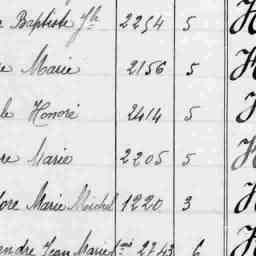 Baptiste Jh 2254 5
Marie 2156 5
Honoré 2414 5
Marie 2205 5
Marie Michel 1220 3
Jean Marie 2743 6